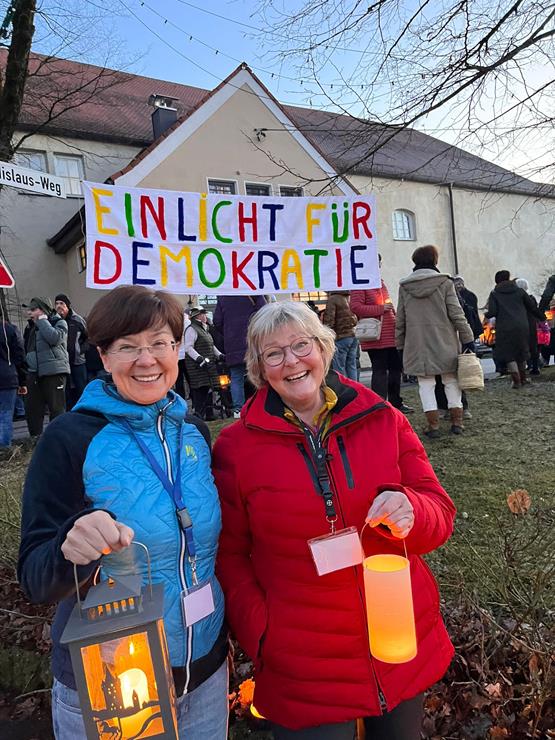 islaus-Weg
EIN LICHT FÜR
DEMOKRATIE